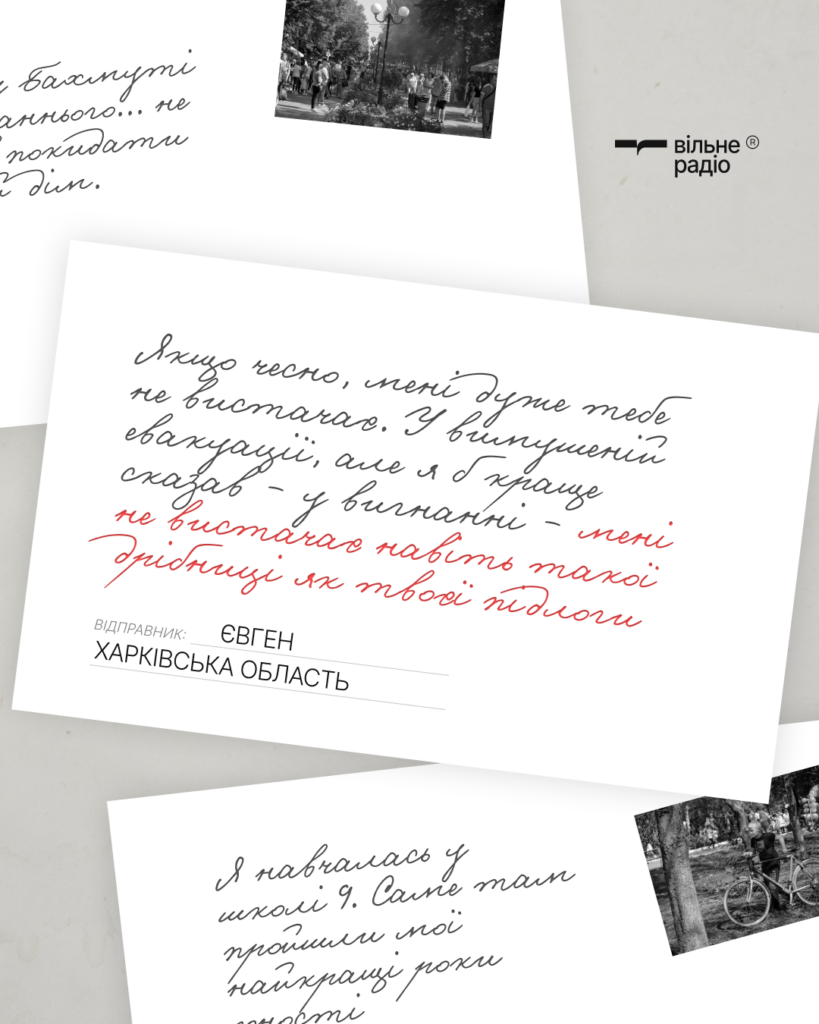 Бахмуті
не
покидати
дім.
вільне ®
радіо
Якщо чесно, мені дуже тебе
не вистачає. У вимушеній
евакуації, але я б краще
сказав – у вигнанні – мені
не вистачає навіть такої
дрібниці як твоєї підлоги
ВІДПРАВНИК: ЄВГЕН
ХАРКІВСЬКА ОБЛАСТЬ
Я навчалась у
школі 9. Саме там
пройшли мої
найкращі роки
юності